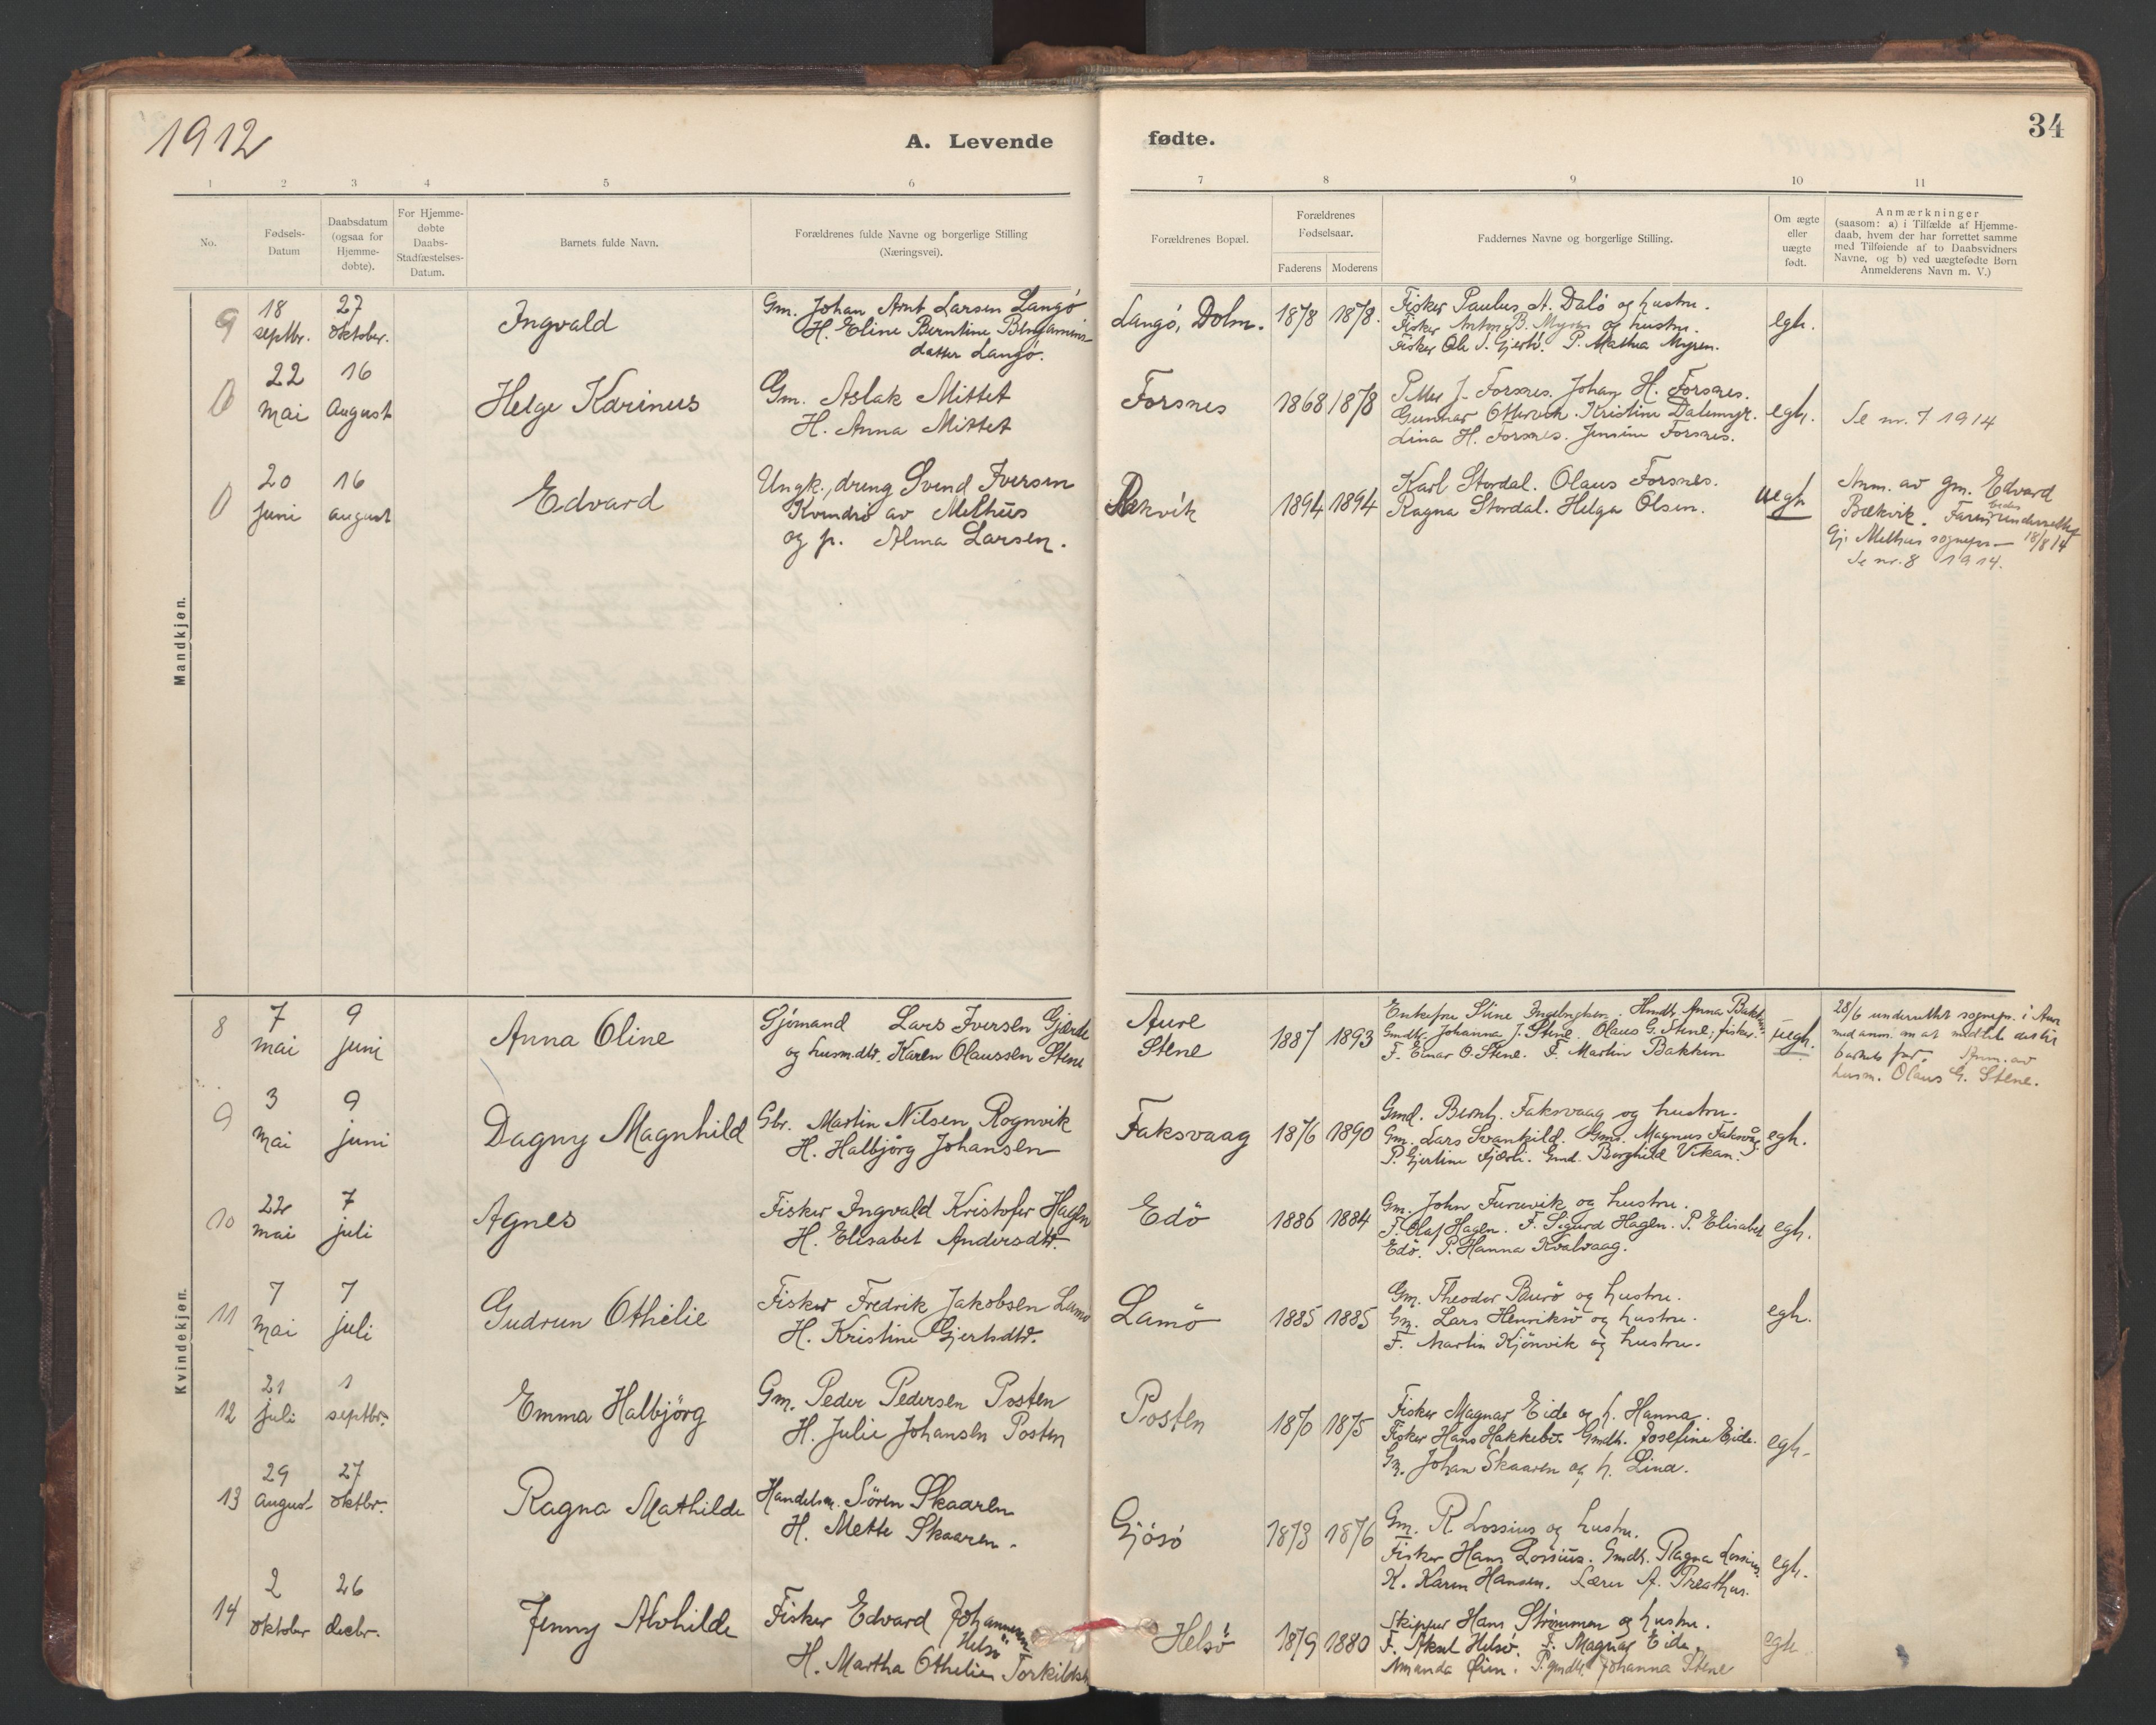 1912
A. Levende fødte.
34
1 2 3 4 5 6 7 8 9 10 11
No.
Fødsels-
Datum
Daabsdatum
(ogsaa for
Hjemme-
døbte).
For Hjemme-
døbte
Daabs-
Stadfæstelses-
Datum.
Barnets fulde Navn.
Forældrenes fulde Navne og borgerlige Stilling
(Næringsvei).
Forældrenes Bopæl.
Forældrenes
Fødselsaar.
Faderens Moderens
Faddernes Navne og borgerlige Stilling.
Om ægte
eller
uægte
født.
Anmærkninger
(saasom: a) i Tilfælde af Hjemme-
daab, hvem der har forrettet samme
med Tilføiende af to Daabsvidners
Navne, og b) ved uægtefødte Børn
Anmelderens Navn m. V.)
Mandkjøn.
9
18
septbr.
27
oktober.
Ingvald
Gm. Johan Arnt Larsen Langö
H. Eline Berntine Bengamins-
datter Langö.
Langö, Dolm.
1878 1878.
Fisker Paulus A. Dalö og hustru.
Fisker Anton B. Myren og hustru.
Fisker Ole J. P. Mathea Myren.
egte.
0
22
mai
16
August
Helge Karinus
Gm. Aslak Mittet
H. Anna Mittet
Forsnes
1868 1878
J. Forsnes. Johan H. Forsnes.
Gunnar Kristine
Lina H. Forsnes. Jensine Forsnes.
egte.
Se nr. 7 1914
0
20
juni
16
august
Edvard
Ungk., dreng Svend Iversen
Kvendrö av Melhus
og p. Alma Larsen.
Bekvik
1894 1894
Karl Stordal. Olaus Forsnes.
Ragna Stordal. Helga Olsen.
uegte
Anm. av gm. Edvard
Bækvik. Faren bedes underrettet
Gj. Melhus sognepr. 18/8 14
Se nr. 8 1914.
Kvindekjøn.
8
7
mai
9
juni
Anna Oline
Gjömand Lars Iversen Gjerde
og husm.dtr. Karen Olaussen Stene
Aure
Stene
1887 1893
Enkefru Stine Ingebrigtsen. Anna Bakken
Gmdtr. Johanna J. Stene. Olaus G. Stene, fisker.
F. Einar O. Stene. F. Martin Bakken
uegte.
28/6 underrettet sognepr. i Aure
med anm. om at meddele det til
barnets far. Anm. av
husm. Olaus G. Stene.
9
3
mai
9
juni
Dagny Magnhild
Gbr. Martin Nilsen Rognvik
H. Halbjörg Johansen
Faksvaag
1876 1890
Gmd. Bernh. Faksvaag og hustru.
Gm. Lars Svankild. Gms. Magnus Faksvåg.
P. Gjertine Gmd. Borghild Vikan.
egte.
10
22
mai
7
juli
Agnes
Fisker Ingvald Kristofer Hagen
H. Elisabet Andersdtr.
Edö
1886 1884
Gm. John Furuvik og hustru.
F. Olaf Hagen. F. Sigurd Hagen. P. Elisabet
Edö. P. Hanna Kvalvaag.
egte.
11
7
mai
7
juli
Gudrun Othilie
Fisker Fredrik Jakobsen Lamö
H. Kristine Gjertsdtr.
Lamö
1885 1885
Gm. Theodor Burö og hustru.
Gm. Lars Henriksö og hustru.
F. Martin Kjönvik og hustru.
egte.
12
21
juli
1
septbr.
Emma Halbjörg
Gm. Peder Pedersen Posten
H. Julie Johansen Posten
Posten
1870 1875
Fisker Magnar Eide og h. Hanna.
Fisker Hans Hakkebo. Gmdtr. Josefine Eide.
Gm. Johan Skaaren og h. Lina.
egte.
13
29
august
27
oktbr.
Ragna Mathilde
Handelsm. Sören Skaaren
H. Mette Skaaren.
Gjösö
1873 1876
Gm. R. Lossius og hustru.
Fisker Hans Lossius. Gmdtr. Ragna Lossius.
K. Karen Hansen. Lærer A.
egte.
14
2
oktober
26
decbr.
Jenny Alvhilde
Fisker Edvard Johannesen
Helsö
H. Martha Othelien Torkildsd
Helsö
1879 1880
Skipper Hans Strömmen og hustru.
F. Aksel Helsö. F. Magnar Eide.
Amanda Öien. P. gmdtr. Johanna Stene
egte.